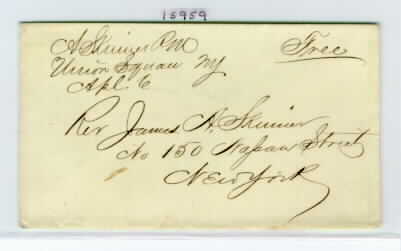 15959
A Skinner P.M
Free
Union Square NY
Apl 6
Rev James A. Skinner
No 150 Nassau Street
New York